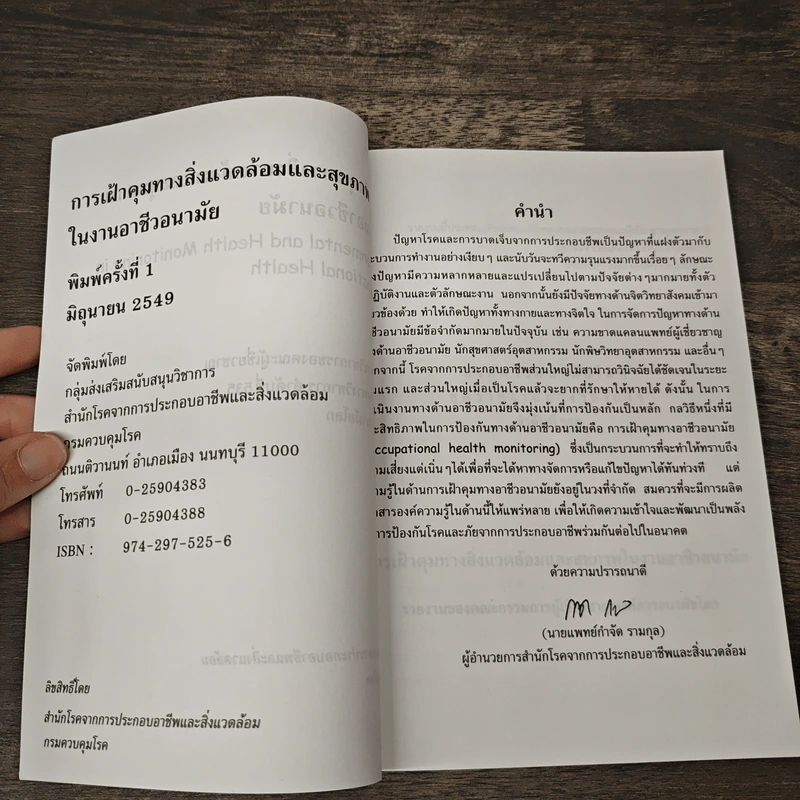 การเฝ้าคุมทางสิ่งแวดล้อมและสุขภาพ
ในงานอาชีวอนามัย
พิมพ์ครั้งที่ 1
มิถุนายน 2549
จัดพิมพ์โดย
กลุ่มส่งเสริมสนับสนุนวิชาการ
สำนักโรคจากการประกอบอาชีพและสิ่งแวดล้อม
กรมควบคุมโรค
ถนนติวานนท์ อำเภอเมือง นนทบุรี 11000
โทรศัพท์ 0-25904383
โทรสาร 0-25904388
ISBN : 974-297-525-6
ลิขสิทธิ์โดย
สำนักโรคจากการประกอบอาชีพและสิ่งแวดล้อม
กรมควบคุมโรค
คำนำ
ปัญหาโรคและการบาดเจ็บจากการประกอบอาชีพเป็นปัญหาที่แฝงตัวมากับ
ะบวนการทำงานอย่างเงียบๆ และนับวันจะทวีความรุนแรงมากขึ้นเรื่อยๆ ลักษณะ
งปัญหามีความหลากหลายและแปรเปลี่ยนไปตามปัจจัยต่างๆมากมายทั้งตัว
ฏิบัติงานและตัวลักษณะงาน นอกจากนั้นยังมีปัจจัยทางด้านจิตวิทยาสังคมเข้ามา
ยวข้องด้วย ทำให้เกิดปัญหาทั้งทางกายและทางจิตใจ ในการจัดการปัญหาทางด้าน
ชีวอนามัยมีข้อจำกัดมากมายในปัจจุบัน เช่น ความขาดแคลนแพทย์ผู้เชี่ยวชาญ
งด้านอาชีวอนามัย นักสุขศาสตร์อุตสาหกรรม นักพิษวิทยาอุตสาหกรรม และอื่นๆ
กจากนี้ โรคจากการประกอบอาชีพส่วนใหญ่ไม่สามารถวินิจฉัยได้ชัดเจนในระยะ
มแรก และส่วนใหญ่เมื่อเป็นโรคแล้วจะยากที่รักษาให้หายได้ ดังนั้น ในการ
เนินงานทางด้านอาชีวอนามัยจึงมุ่งเน้นที่การป้องกันเป็นหลัก กลวิธีหนึ่งที่มี
ะสิทธิภาพในการป้องกันทางด้านอาชีวอนามัยคือ การเฝ้าคุมทางอาชีวอนามัย
ccupational health monitoring) ซึ่งเป็นกระบวนการที่จะทำให้ทราบถึง
ามเสี่ยงแต่เนิ่นๆได้เพื่อที่จะได้หาทางจัดการหรือแก้ไขปัญหาได้ทันท่วงที แต่
ามรู้ในด้านการเฝ้าคุมทางอาชีวอนามัยยังอยู่ในวงที่จำกัด สมควรที่จะมีการผลิต
าสารองค์ความรู้ในด้านนี้ให้แพร่หลาย เพื่อให้เกิดความเข้าใจและพัฒนาเป็นพลัง
ารป้องกันโรคและภัยจากการประกอบอาชีพร่วมกันต่อไปในอนาคต
ด้วยความปรารถนาดี
(นายแพทย์กำจัด รามกุล)
ผู้อำนวยการสำนักโรคจากการประกอบอาชีพและสิ่งแวดล้อม